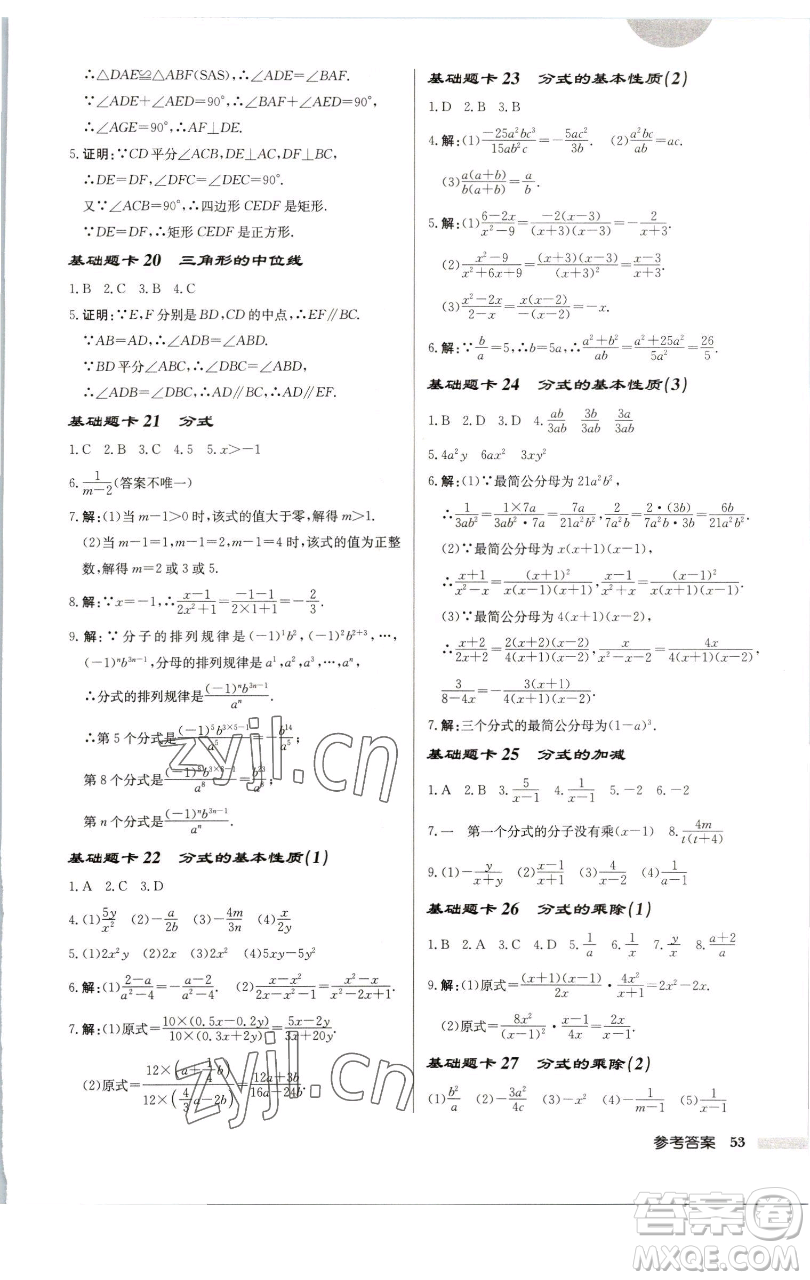 ∴△DAE≌△ABF(SAS),∴∠DAE=∠BAF.
∵∠ADE+∠AED=90°,∴∠BAF+∠AED=90°,
∴∠AGE=90°,∴AF⊥DE.
5.证明:∵CD平分∠ACB,DE⊥AC,DF⊥BC,
∴DE=DF,∠DFC=∠DEC=90°.
又∵∠ACB=90°,∴四边形CEDF是矩形.
∵DE=DF,∴矩形CEDF是正方形.
基础题卡20 三角形的中位线
1.B 2.C 3.B 4.C
5.证明:∵E,F分别是BD,CD的中点,∴EF∥BC.
∵AB=AD,∴∠ADB=∠ABD.
∵BD平分∠ABC,∴∠ABD=∠DBC,
∴∠ADB=∠DBC,∴AD∥BC,∴AD∥EF.
基础题卡21 分式
1.C 2.B 3.C 4.5 5.x>-1
6.1/(m-2)(答案不唯一)
7.解:(1)当m-1>0时,该式的值大于零,解得m>1.
(2)当m-1=1,m-1=2,m-1=4时,该式的值为正整
数,解得m=2或3或5.
8.解:∵x=-1,∴(x-1)/(2x²+1)=(-1-1)/(2×1+1)=-2/3.
9.解:∵分子的排列规律是(-1)¹b²,(-1)²b⁵,…,
(-1)ⁿb³ⁿ⁻¹,分母的排列规律是a¹,a²,a³,…,aⁿ,
∴分式的排列规律是(-1)ⁿb³ⁿ⁻¹/aⁿ.
∴第5个分式是(-1)⁵b^(3×5-1)/a⁵=-b¹⁴/a⁵;
第8个分式是(-1)⁸b^(3×8-1)/a⁸=b²³/a⁸;
第n个分式是(-1)ⁿb³ⁿ⁻¹/aⁿ.
基础题卡22 分式的基本性质(1)
1.A 2.C 3.D
4.(1)5y/x² (2)-a/2b (3)-4m/3n (4)x/2y
5.(1)2x²y (2)x (3)2a²+2ab (4)5xy-5y²
6.解:(1)(2-a)/(a²-4)=-(a-2)/(a²-4). (2)(x-x²)/(2x-x²-1)=(x²-x)/(x²-2x+1).
7.解:(1)原式=10×(0.5x-0.2y)/10×(0.3x+2y)=(5x-2y)/(3x+20y).
(2)原式=12×(a+1/4b)/12×(4/3a-2b)=(12a+3b)/(16a-24b).
基础题卡23 分式的基本性质(2)
1.D 2.B 3.B
4.解:(1)-25a²bc³/15ab²c=-5ac²/3b. (2)a²bc/ab=ac.
(3)a(a+b)/b(a+b)=a/b.
5.解:(1)(6-2x)/(x²-9)=-2(x-3)/(x+3)(x-3)=-2/(x+3).
(2)(x²-9)/(x²+6x+9)=(x+3)(x-3)/(x+3)²=(x-3)/(x+3).
(3)(x²-2x)/(2-x)=x(x-2)/-(x-2)=-x.
6.解:∵b/a=5,∴b=5a,∴(a²+b²)/ab=(a²+25a²)/5a²=26/5.
基础题卡24 分式的基本性质(3)
1.B 2.D 3.D 4.ab/3ab 3b/3ab 3a/3ab
5.4a²y 6ax² 3x²y
6.解:(1)∵最简公分母为21a²b²,
∴1/3ab²=1×7a/3ab²·7a=7a/21a²b²,2/7a²b=2·(3b)/7a²b·3b=6b/21a²b².
(2)∵最简公分母为x(x+1)(x-1),
∴(x+1)/(x²-x)=(x+1)²/x(x+1)(x-1),(x-1)/(x²+x)=(x-1)²/x(x+1)(x-1).
(3)∵最简公分母为4(x+1)(x-2),
∴(x+2)/(2x+2)=2(x+2)(x-2)/4(x+1)(x-2),x/(x-2)=4x(x+1)/4(x+1)(x-2),
3/(8-4x)=-3(x+1)/4(x+1)(x-2).
7.解:三个分式的最简公分母为(1-a)³.
基础题卡25 分式的加减
1.A 2.B 3.5/(x-1) 4.1/(x-1) 5.-2 6.-2
7.一 第一个分式的分子没有乘(x-1) 8.4m/t(t+4)
9.(1)-y/(x+y) (2)(x-1)/(x+1) (3)4/(x-2) (4)1/(a-1)
基础题卡26 分式的乘除(1)
1.B 2.A 3.C 4.D 5.1/a 6.1/x 7.y/x 8.(a+2)/a
9.解:(1)原式=(x+1)(x-1)/2x·4x²/(x+1)=2x²-2x.
(2)原式=8x²/(x-1)²·(x-1)/4x=2x/(x-1).
基础题卡27 分式的乘除(2)
(1)b²/a (2)-3a²/4c (3)-x² (4)1/(m-1) (5)1/x
参考答案 53
zyjl.cn
zyjl.cn
答案圈
MXQE.COM